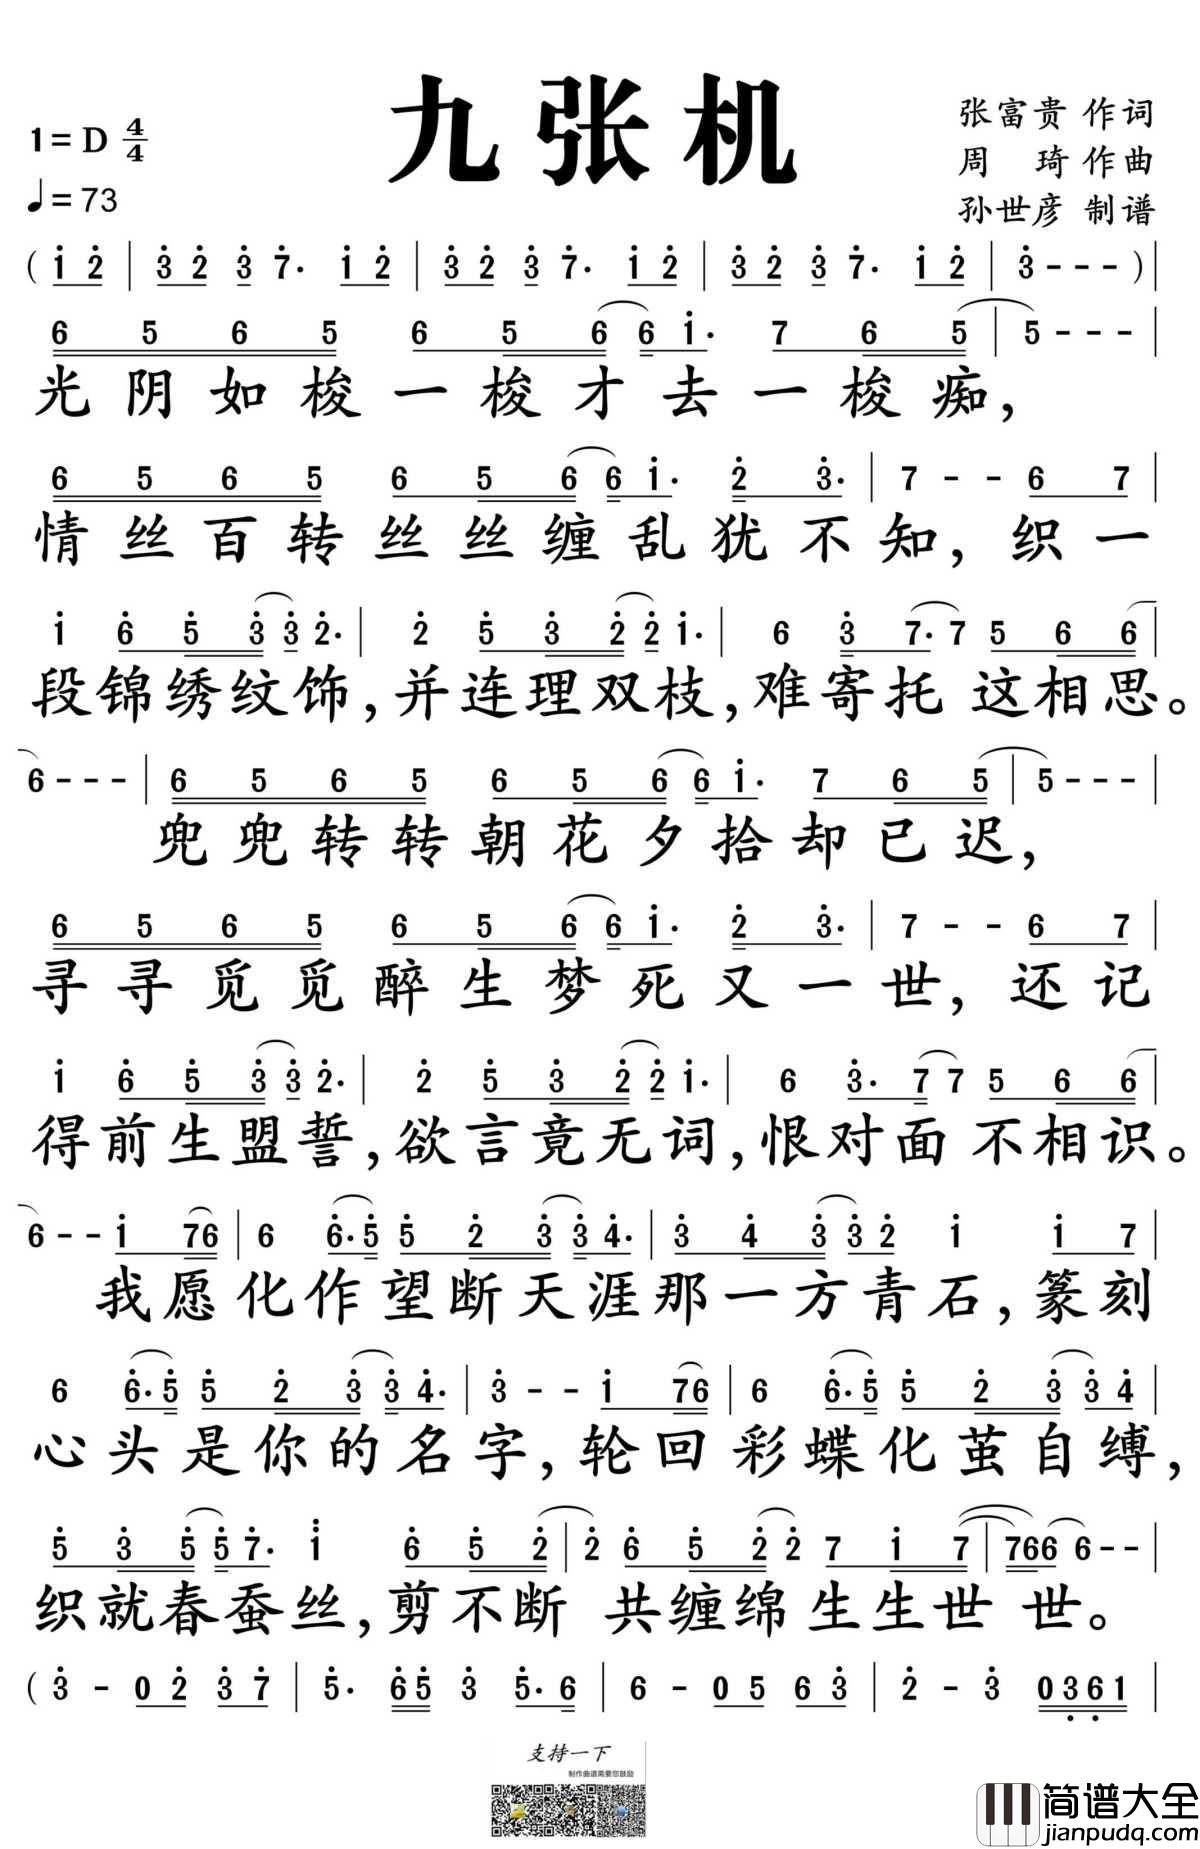 九张机
1=D 4/4
♩=73
张富贵 作词
周 琦 作曲
孙世彦 制谱
( i̇ 2̇ | 3̇ 2̇ 3̇ 7. i̇ 2̇ | 3̇ 2̇ 3̇ 7. i̇ 2̇ | 3̇ 2̇ 3̇ 7. i̇ 2̇ | 3̇ - - - ) |
6 5 6 5 6 5 6 6 i̇. 7 6 5 | 5 - - - |
光阴如梭一梭才去一梭痴，
6 5 6 5 6 5 6 6 i̇. 2̇ 3̇. | 7 - - 6 7 |
情丝百转丝丝缠乱犹不知，织一
i̇ 6̇ 5̇ 3̇ 3̇ 2̇. | 2̇ 5̇ 3̇ 2̇ 2̇ i̇. | 6 3̇ 7. 7 5 6̇ 6̇ |
段锦绣纹饰，并连理双枝，难寄托 这相思。
6 - - - | 6 5 6 5 6 5 6 6 i̇. 7 6 5 | 5 - - - |
兜兜转转朝花夕拾却已迟，
6 5 6 5 6 5 6 6 i̇. 2̇ 3̇. | 7 - - 6 7 |
寻寻觅觅醉生梦死又一世，还记
i̇ 6̇ 5̇ 3̇ 3̇ 2̇. | 2̇ 5̇ 3̇ 2̇ 2̇ i̇. | 6 3̇. 7 7 5 6̇ 6̇ |
得前生盟誓，欲言竟无词，恨对面 不相识。
6 - - i̇ 76 | 6 6̇. 5̇ 5̇ 2̇ 3̇ 3̇ 4̇. | 3̇ 4̇ 3̇ 3̇ 2̇ i̇ i̇ 7 |
我愿化作望断天涯那一方青石，篆刻
6 6̇. 5̇ 5̇ 2̇ 3̇ 3̇ 4̇. | 3̇ - - i̇ 76 | 6 6̇. 5̇ 5̇ 2̇ 3̇ 3̇ 4̇ |
心头是你的名字，轮回彩蝶化茧自缚，
5̇ 3̇ 5̇ 5̇ 7̇. i̇̇ 6̇ 5̇ 2̇ | 2̇ 6̇ 5̇ 2̇ 2̇ 7 i̇ 7 | 766 6 - - |
织就春蚕丝，剪不断 共缠绵生生世 世。
( 3̇ - 0 2̇ 3̇ 7̇ | 5̇. 6̇5̇ 3̇ 5̇. 6 | 6 - 0 5 6 3̇ | 2̇ - 3̇ 03̣6̣1 |
支持一下
制作曲谱需要您鼓励
简谱大全
jianpudq.com